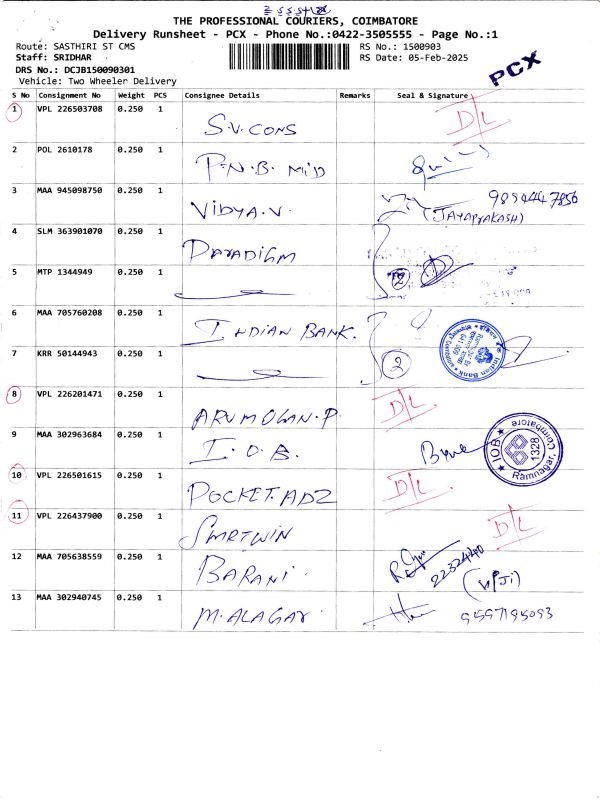 THE PROFESSIONAL COURIERS, COIMBATORE
Delivery Runsheet - PCX - Phone No.:0422-3505555 - Page No.:1
Route: SASTHIRI ST CMS
RS No.: 1500903
Staff: SRIDHAR
RS Date: 05-Feb-2025
DRS No.: DCJB150090301
PCX
Vehicle: Two Wheeler Delivery
S No Consignment No Weight PCS Consignee Details Remarks Seal & Signature
1 VPL 226503708 0.250 1 S.V. CONS D/L
2 POL 2610178 0.250 1 P.N.B. MID
3 MAA 945098750 0.250 1 VIDYA.V. 9894447856
(JAYAPRAKASH)
4 SLM 363901070 0.250 1 PARADIGM
5 MTP 1344949 0.250 1 2
6 MAA 705760208 0.250 1 INDIAN BANK.
Indian Bank
7 KRR 50144943 0.250 1 2
8 VPL 226201471 0.250 1 ARUMUGAN.P. D/L
9 MAA 302963684 0.250 1 I.O.B.
IOB Ramnagar, Coimbatore 1328
10 VPL 226501615 0.250 1 POCKET ADZ D/L
11 VPL 226437900 0.250 1 SMRTWIN D/L
12 MAA 705638559 0.250 1 BARANI 22324440
(VPJi)
13 MAA 302940745 0.250 1 M.ALAGAR 9597195093